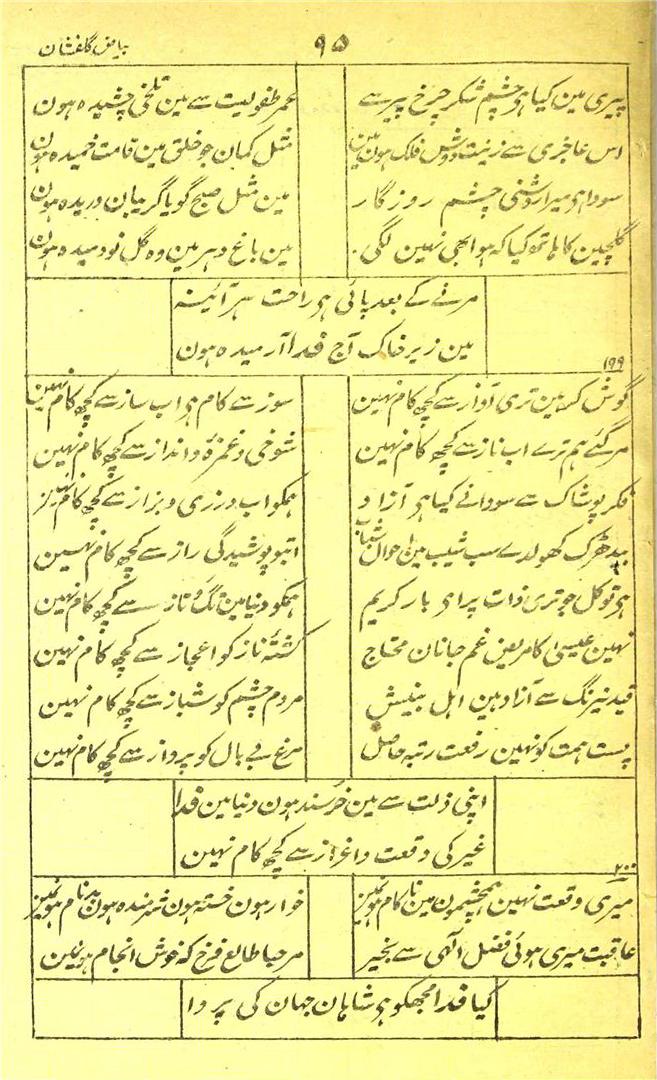 ۹۵ بیاض گلفشان
پیری مین کیا ہو چشم شکر چرخ پیر سے عمر طفولیت سے مین تلخی چشیدہ ہون
اس عاجزی سے زینت دوش فلک ہون مین مثل کمان جو خلق مین قامت خمیدہ ہون
سودا ہی میرا روشنی چشم روزگار مین مثل صبح گویا گریبان دریدہ ہون
گلچین کا ہاتھ کیا کہ ہوا بھی نہین لگی مین باغ دہر مین وہ گل نودمیدہ ہون
مرنے کے بعد پائی ہی راحت ہر آئینہ
مین زیر خاک آج فدا آرمیدہ ہون
۱۹۹
گوش کر مین تری آواز سے کچھ کام نہین سوز سے کام ہو اب ساز سے کچھ کام نہین
مر گئے ہم ترے اب ناز سے کچھ کام نہین شوخی و غمزہ و انداز سے کچھ کام نہین
فکر پوشاک سے سودا نے کیا ہی آزاد ہمکو اب درزی و بزاز سے کچھ کام نہین
بیدھڑک کھولدے سب شیب مین احوال شباب اب تو پوشیدگی راز سے کچھ کام نہین
ہی توکل جو تری ذات پر ای بار کریم ہمکو دنیا مین تگ و تاز سے کچھ کام نہین
نہین عیسیٰ کا مریض غم جانان محتاج کشتۂ ناز کو اعجاز سے کچھ کام نہین
قید نیرنگ سے آزاد ہین اہل بینش مردم چشم کو شہباز سے کچھ کام نہین
پست ہمت کو نہین رفعت رتبہ حاصل مرغ بے بال کو پرواز سے کچھ کام نہین
اپنی ذلت سے مین خرسند ہون دنیا مین فدا
غیر کی وقعت و اعزاز سے کچھ کام نہین
۲۰۰
میری وقعت نہین ہمچشمون مین ناکام ہون مین خوار ہون خستہ ہون شرمندہ ہون بدنام ہون مین
عاقبت میری ہوئی فضل الٰہی سے بخیر مرحبا طالع فرخ کہ خوش انجام ہون مین
کیا فدا مجھکو ہو شاہان جہان کی پروا